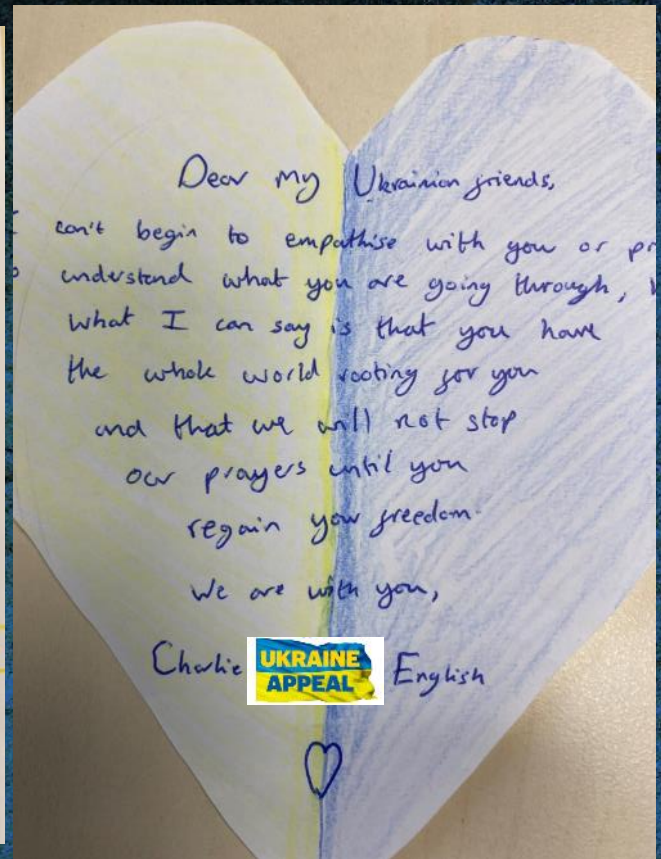 Dear my Ukrainian friends,
can't begin to empathise with you or
understand what you are going through,
What I can say is that you have
the whole world rooting for you
and that we will not stop
our prayers until you
regain your freedom.
We are with you,
Charlie English
UKRAINE
APPEAL